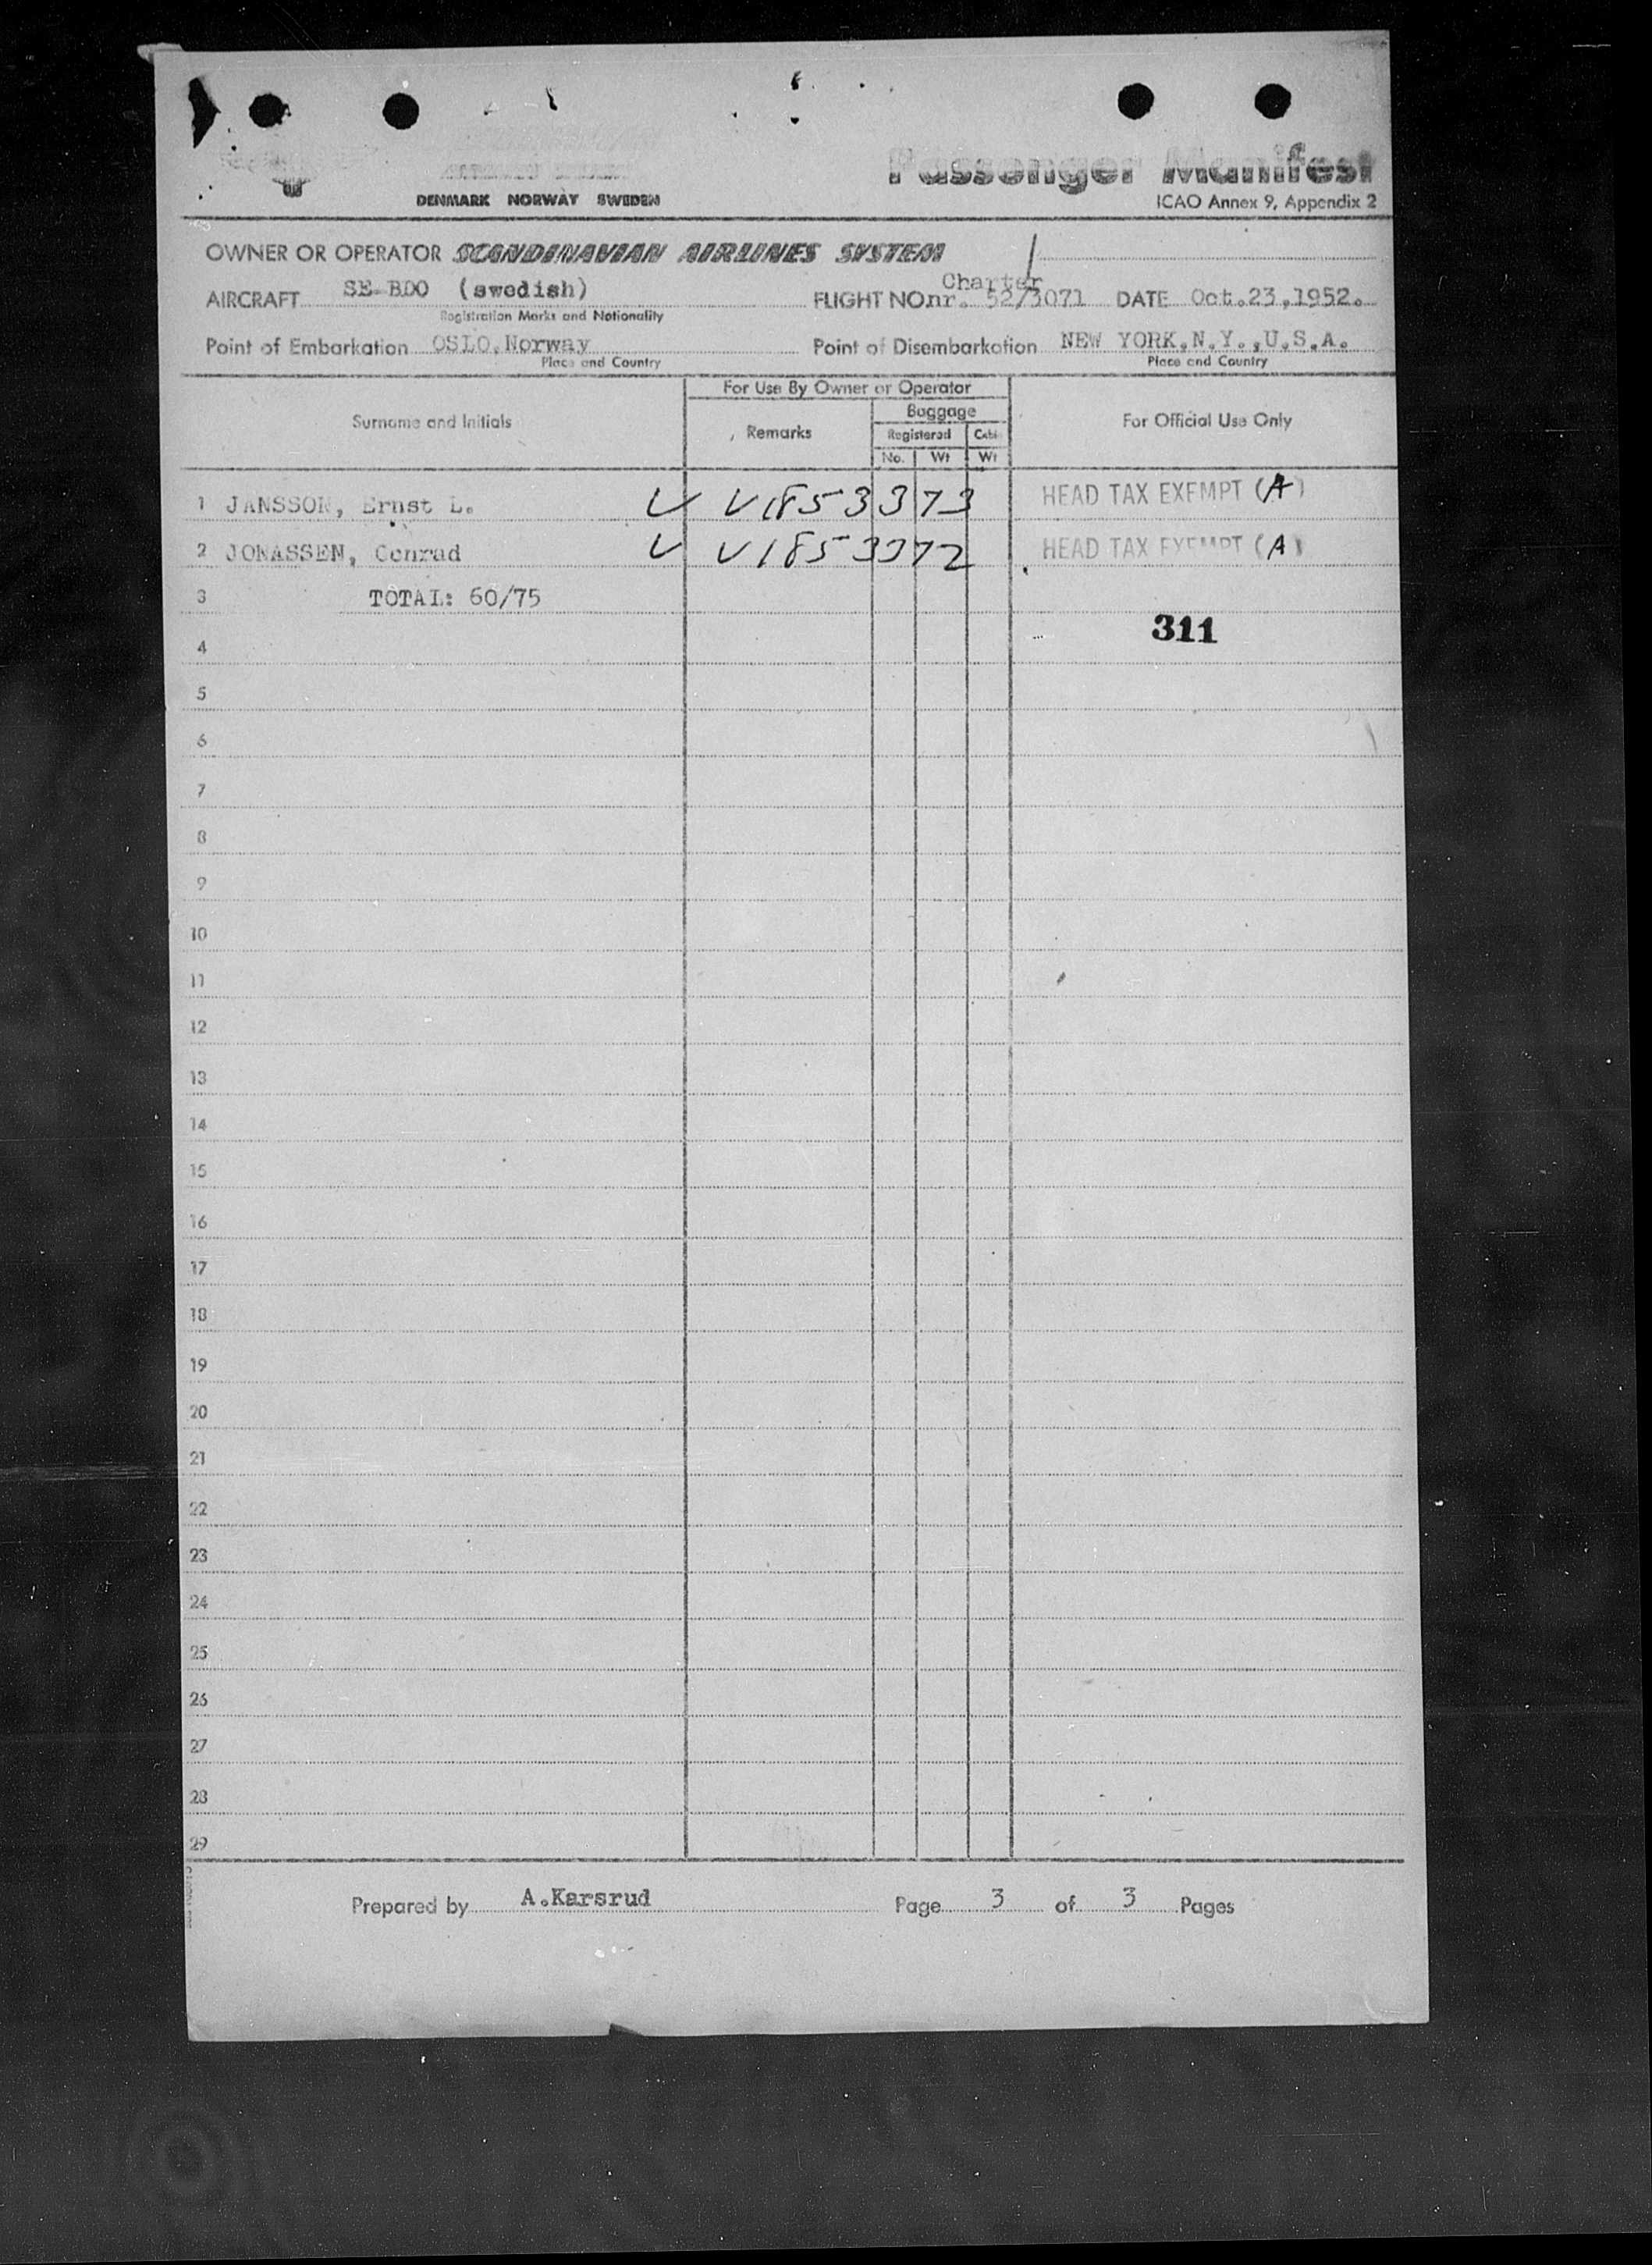 Passenger Manifest
DENMARK NORWAY SWEDEN
ICAO Annex 9, Appendix 2
OWNER OR OPERATOR SCANDINAVIAN AIRLINES SYSTEM
Charter
AIRCRAFT SE-BDO (swedish) FLIGHT NO nr. 52/3071 DATE Oct.23,1952.
Registration Marks and Nationality
Point of Embarkation OSLO,Norway Point of Disembarkation NEW YORK,N.Y.,U.S.A.
Place and Country Place and Country
For Use By Owner or Operator
Surname and Initials Remarks Baggage For Official Use Only
Registered
No. Wt Wt
1 JANSSON, Ernst L. V V1853373 HEAD TAX EXEMPT (A)
2 JONASSEN, Conrad V V1853372 HEAD TAX EXEMPT (A)
3 TOTAL: 60/75
311
4
5
6
7
8
9
10
11
12
13
14
15
16
17
18
19
20
21
22
23
24
25
26
27
28
29
Prepared by A.Karsrud Page 3 of 3 Pages